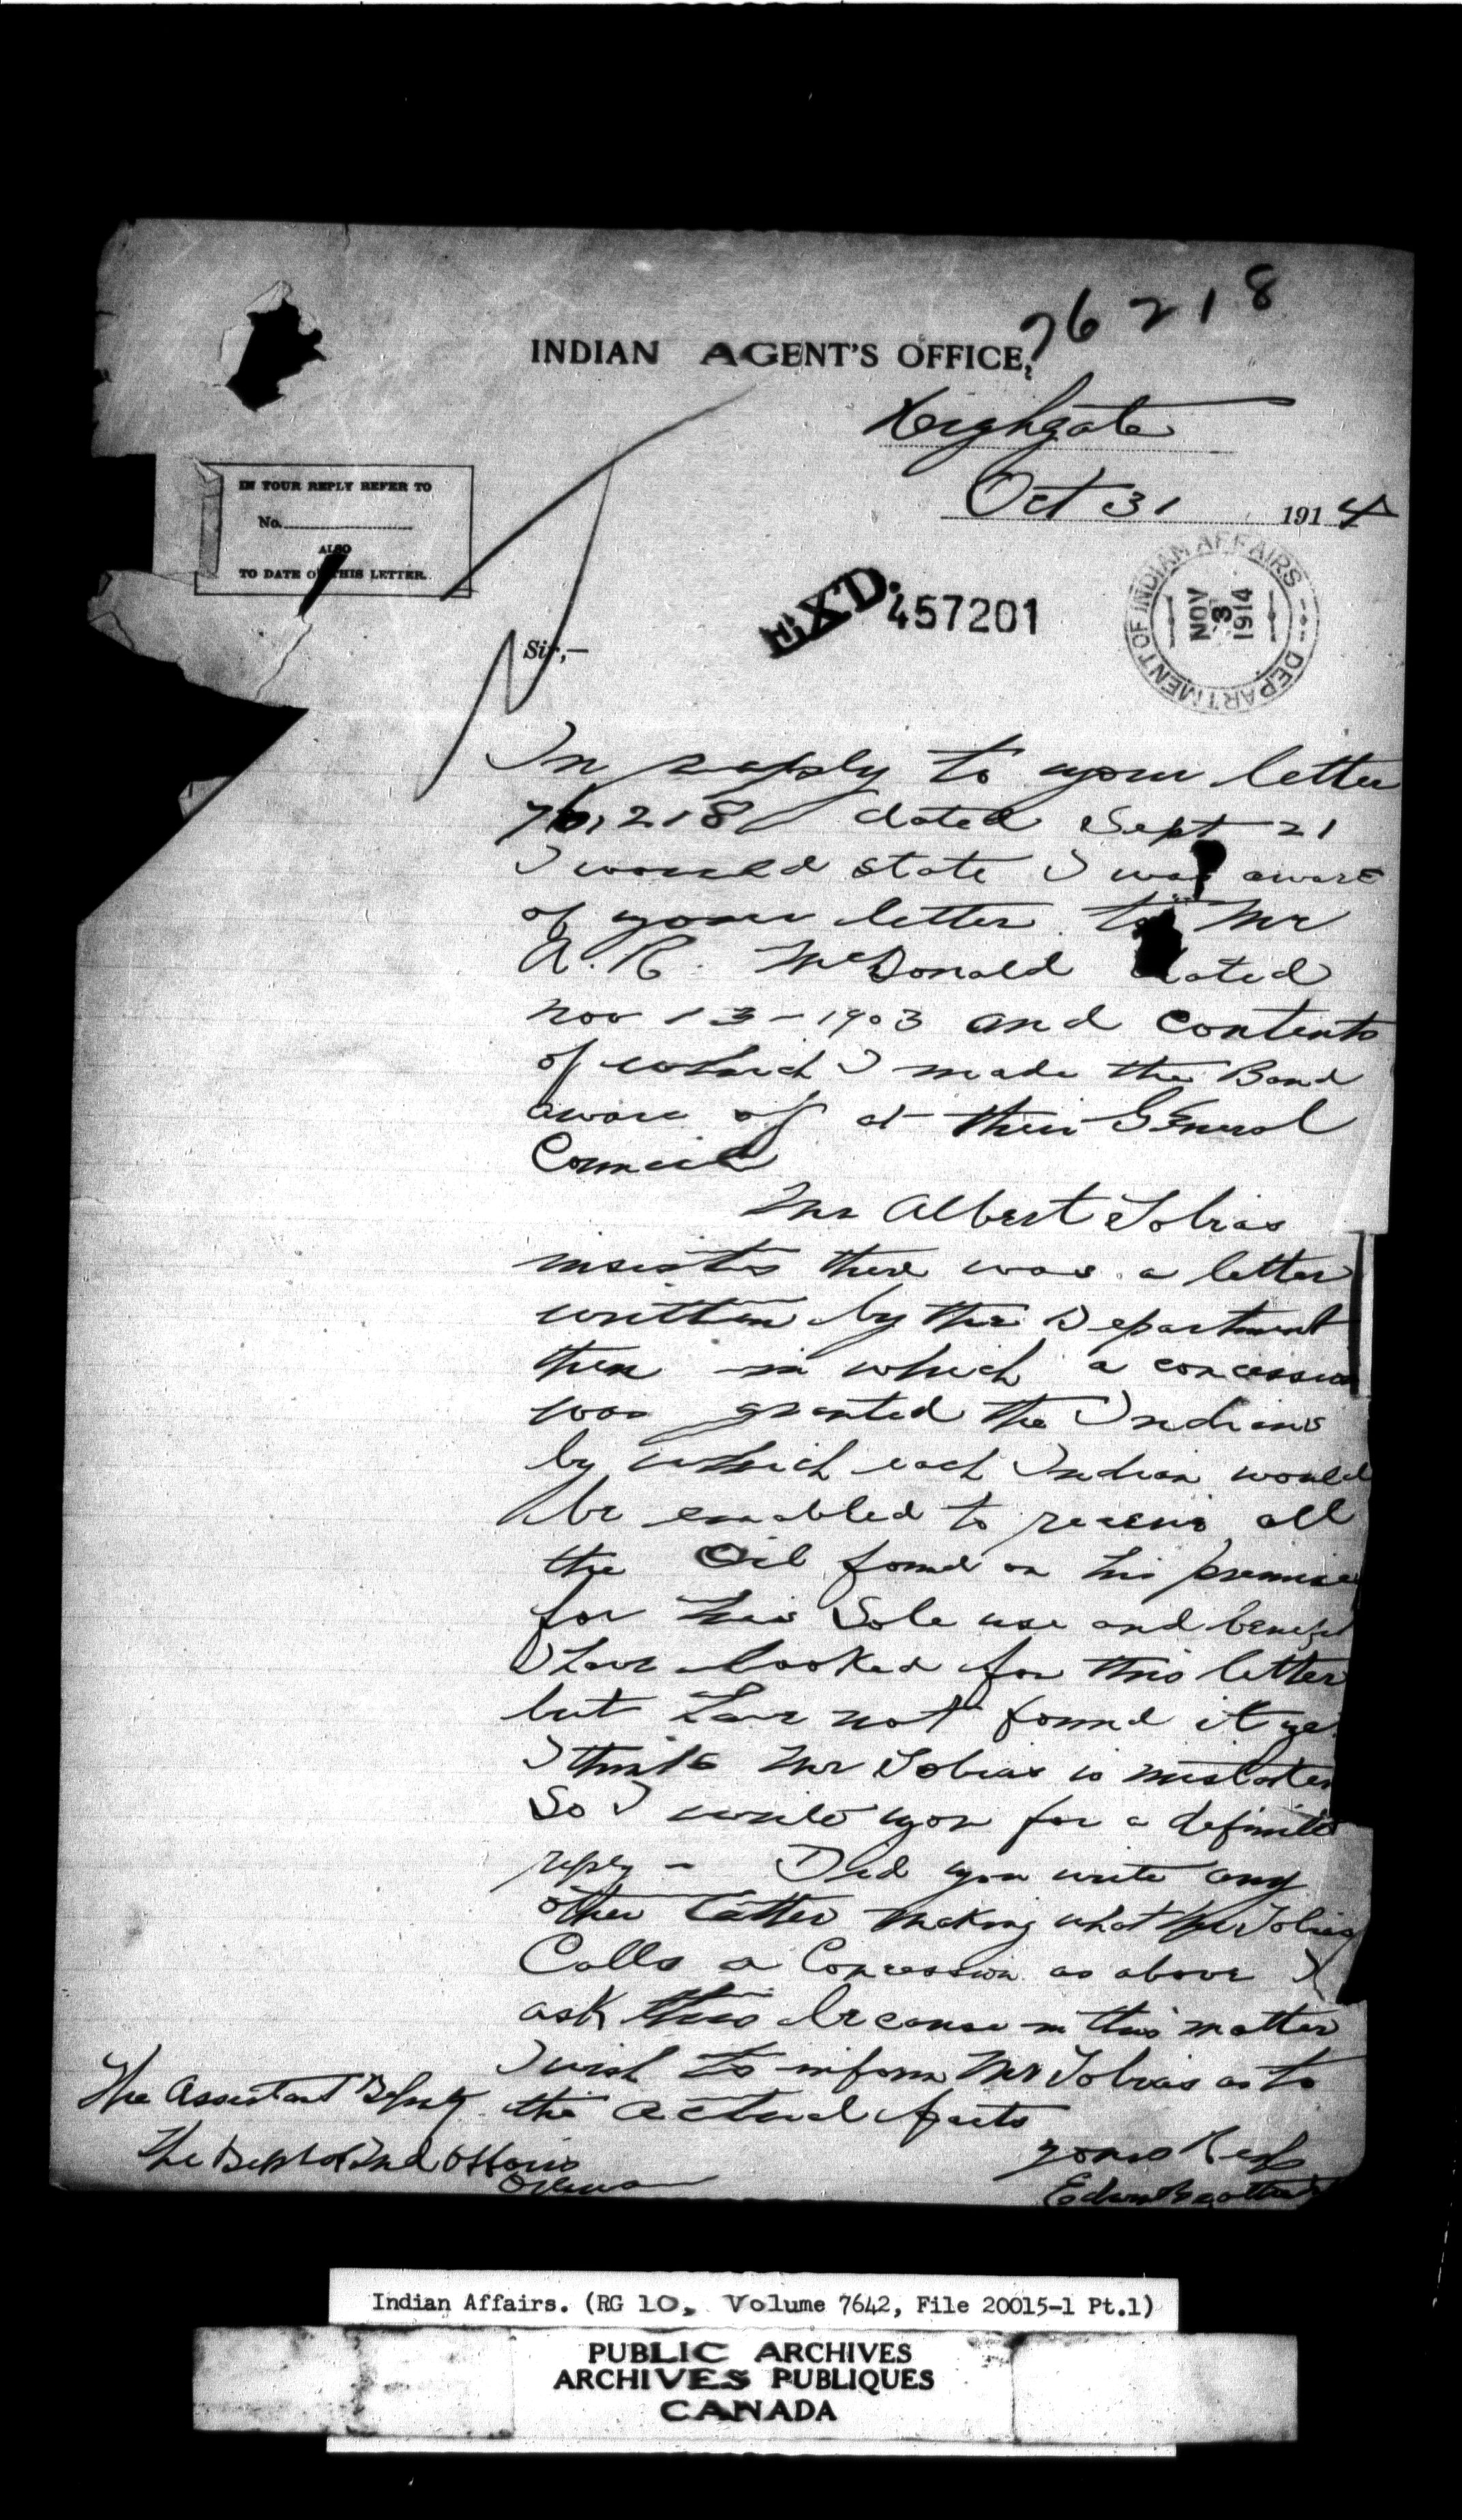 76218
INDIAN AGENT'S OFFICE,
Highgate
Oct 31 1914
IN YOUR REPLY REFER TO
No.
ALSO
TO DATE OF THIS LETTER.
EXD. 457201
DEPARTMENT OF INDIAN AFFAIRS
NOV
3
1914
Sir,—
In reply to your letter
76,218 dated Sept 21
I would state I was aware
of your letter to Mr
A. R. McDonald dated
Nov 13 - 1903 and contents
of which I made the Band
aware of at their General
Council
Mr Albert Tobias
insists there was a letter
written by the Department
then in which a concession
was granted the Indians
by which each Indian would
be enabled to receive all
the Oil found on his premises
for his Sole use and benefit
I have looked for this letter
but have not found it yet
I think Mr Tobias is mistaken
So I write you for a definite
reply - Did you write any
other letter making what Mr Tobias
Calls a Concession as above I
ask this because in this matter
I wish to inform Mr Tobias as to
the actual facts
Yours Resp
The Assistant Deputy
The Dept of Ind Affairs
Ottawa
Indian Affairs. (RG 10, Volume 7642, File 20015-1 Pt.1)
PUBLIC ARCHIVES
ARCHIVES PUBLIQUES
CANADA